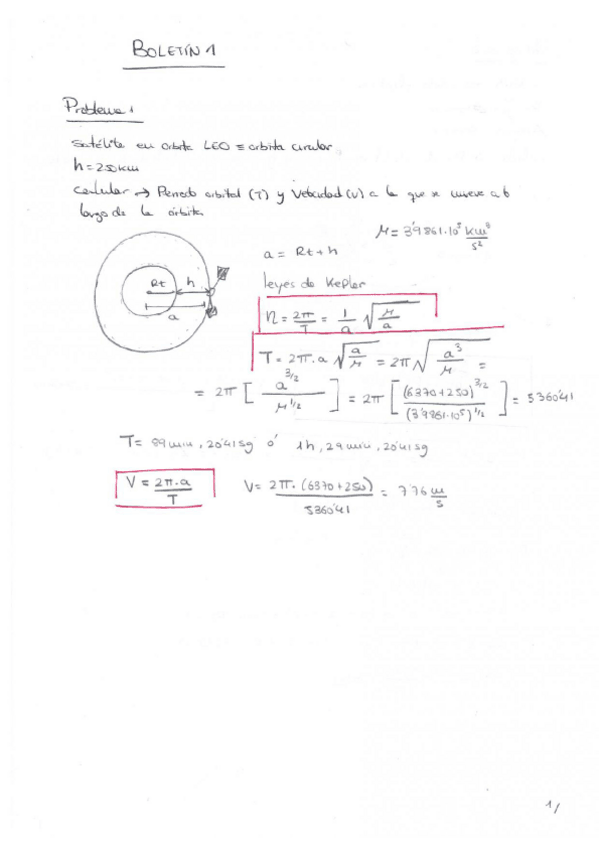 BOLETÍN 1
Problema 1
Satélite en orbita LEO ≡ orbita circular
h = 250 km
Calcular → Periodo orbital (T) y Velocidad (v) a la que se mueve a lo
largo de la órbita.
μ = 3'9861·10⁵ km³/s²
a = Rt + h
Rt h
a
leyes de Kepler
n = 2π/T = 1/a √(μ/a)
T = 2π·a √(a/μ) = 2π √(a³/μ) =
= 2π [a^3/2 / μ^1/2] = 2π [(6370+250)^3/2 / (3'9861·10⁵)^1/2] = 5360'41
T = 89 min, 20'41 sg ó 1h, 29 min, 20'41 sg
V = 2π·a/T V = 2π·(6370+250)/5360'41 = 7'76 m/s
1/